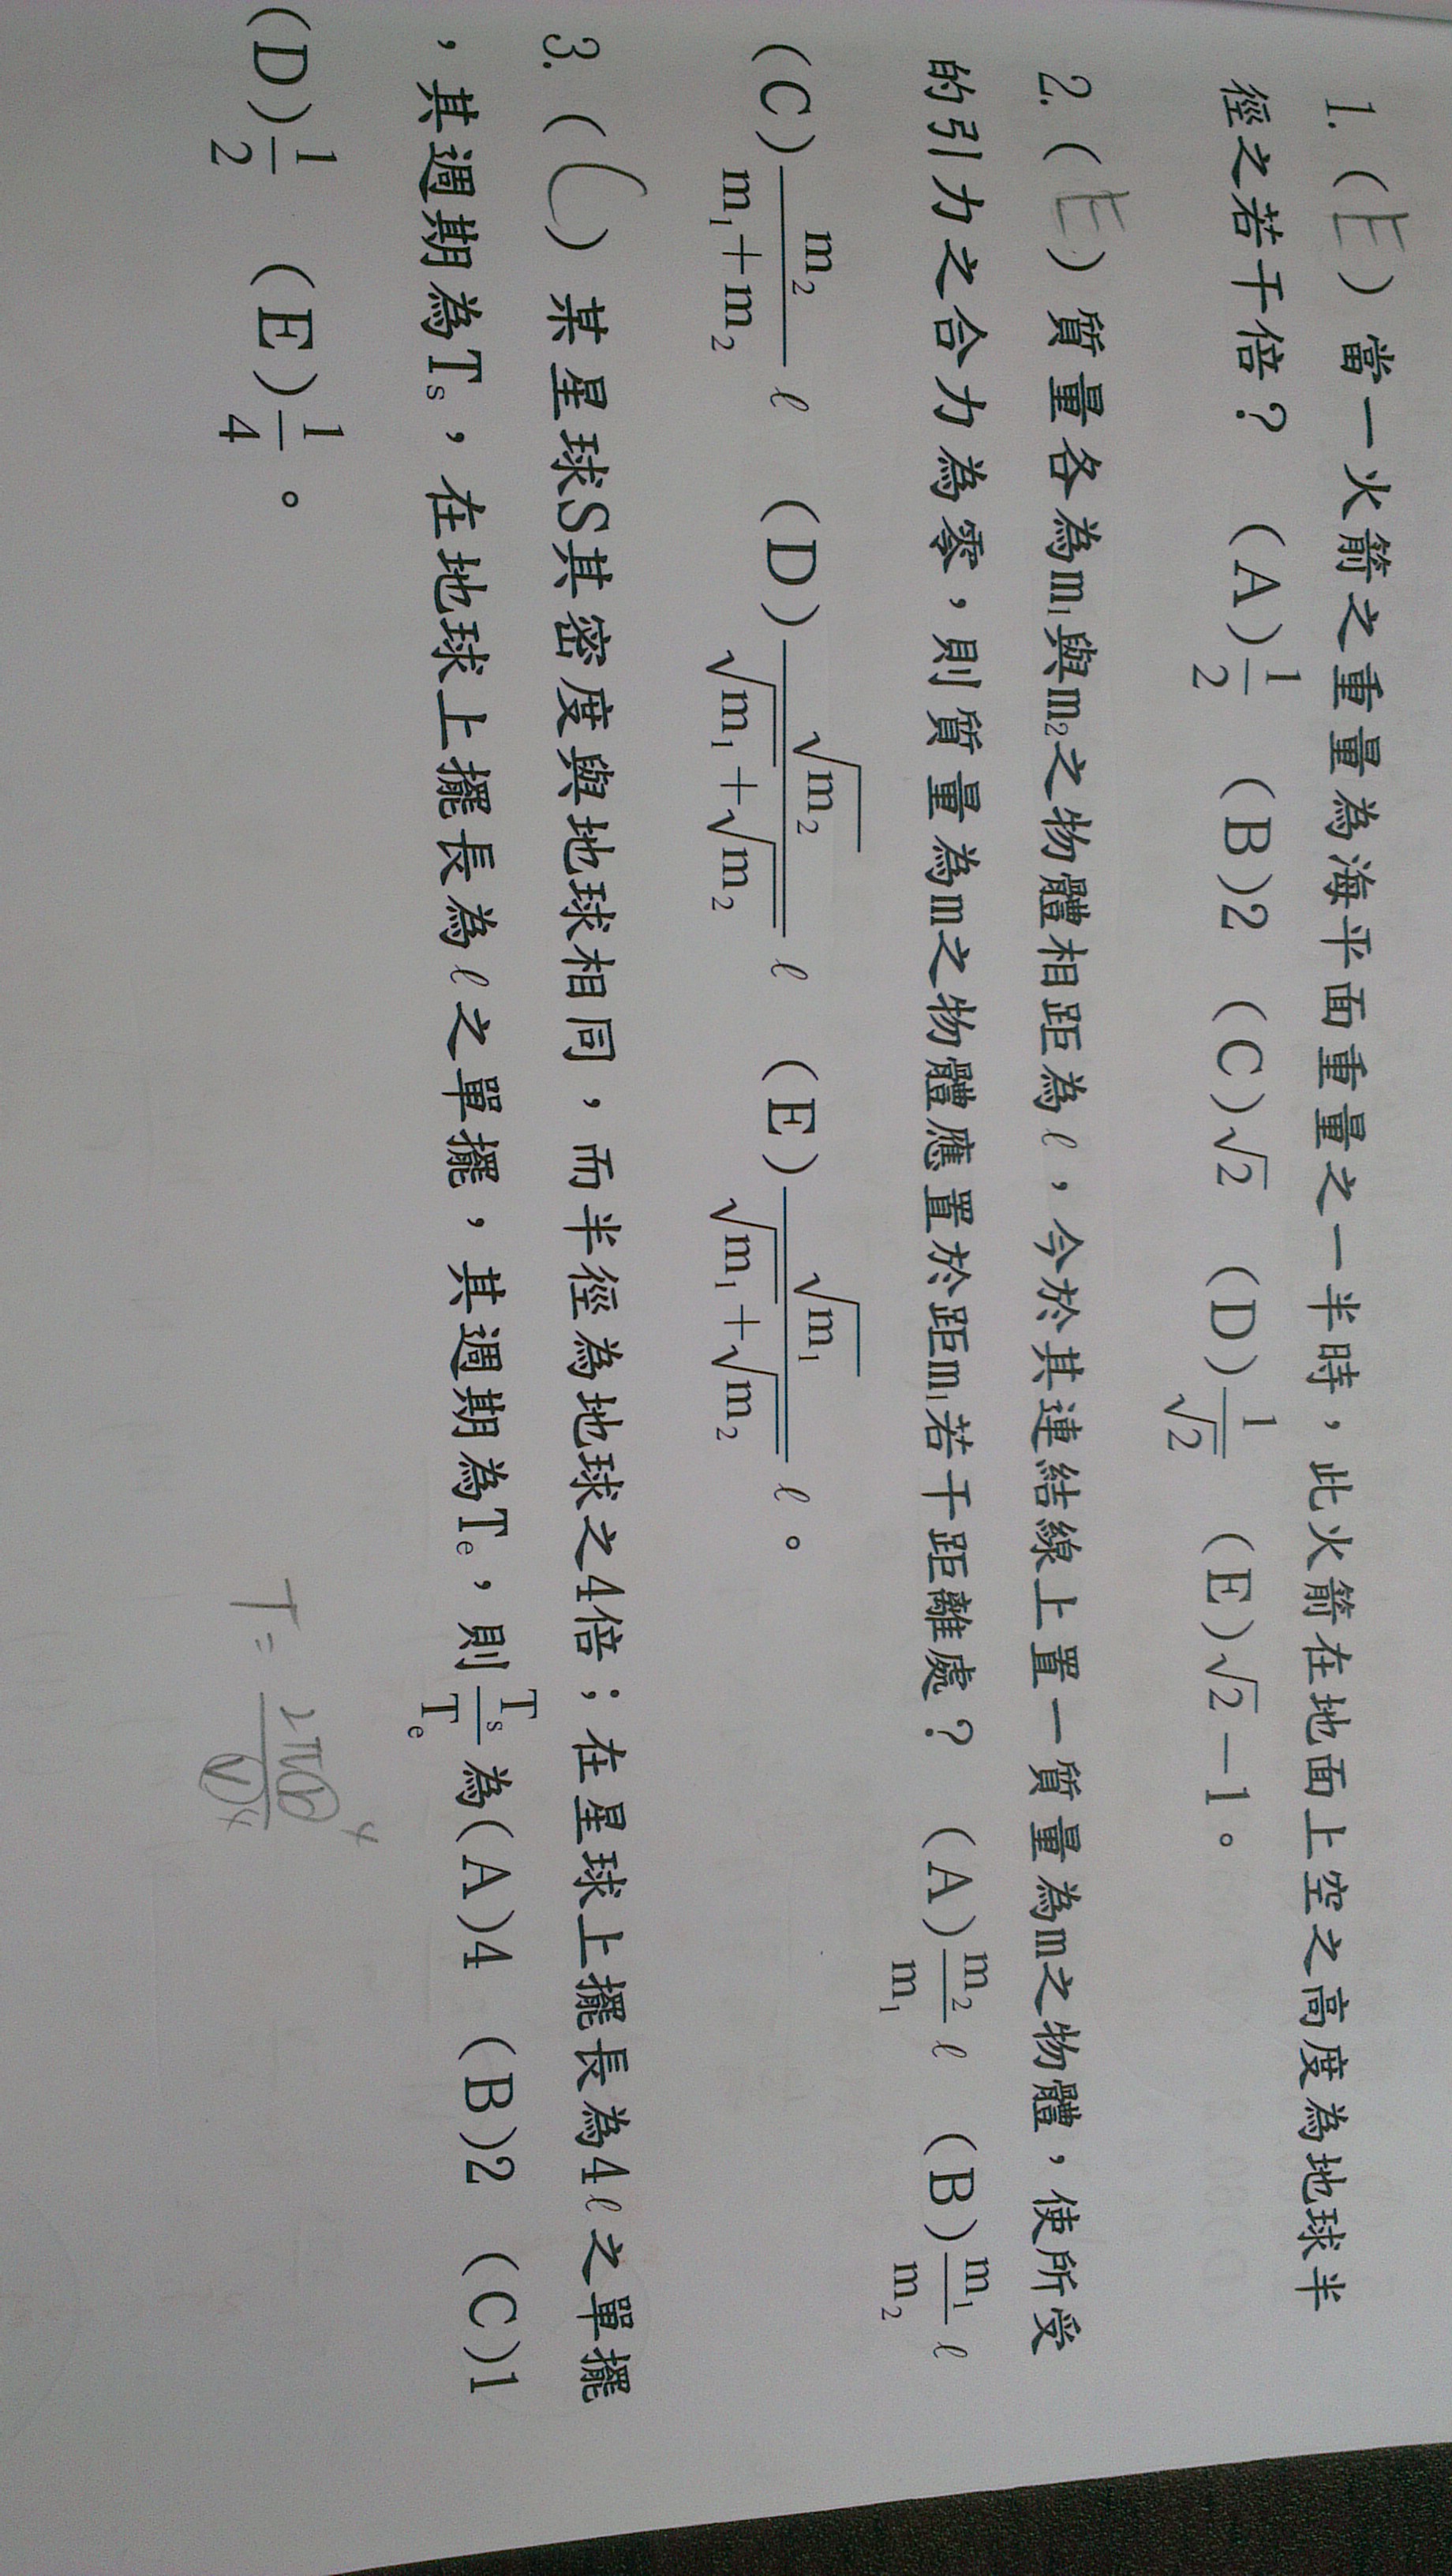 1. (E) 當一火箭之重量為海平面重量之一半時，此火箭在地面上空之高度為地球半
徑之若干倍？ (A)1/2 (B)2 (C)√2 (D)1/√2 (E)√2－1。
2. (E) 質量各為m₁與m₂之物體相距為ℓ，今於其連結線上置一質量為m之物體，使所受
的引力之合力為零，則質量為m之物體應置於距m₁若干距離處？ (A)m₂/m₁ ℓ (B)m₁/m₂ ℓ
(C)m₂/(m₁＋m₂) ℓ (D)√m₂/(√m₁＋√m₂) ℓ (E)√m₁/(√m₁＋√m₂) ℓ。
3. (C) 某星球S其密度與地球相同，而半徑為地球之4倍；在星球上擺長為4ℓ之單擺
，其週期為Tₛ，在地球上擺長為ℓ之單擺，其週期為Tₑ，則Tₛ/Tₑ為(A)4 (B)2 (C)1
(D)1/2 (E)1/4。
T=